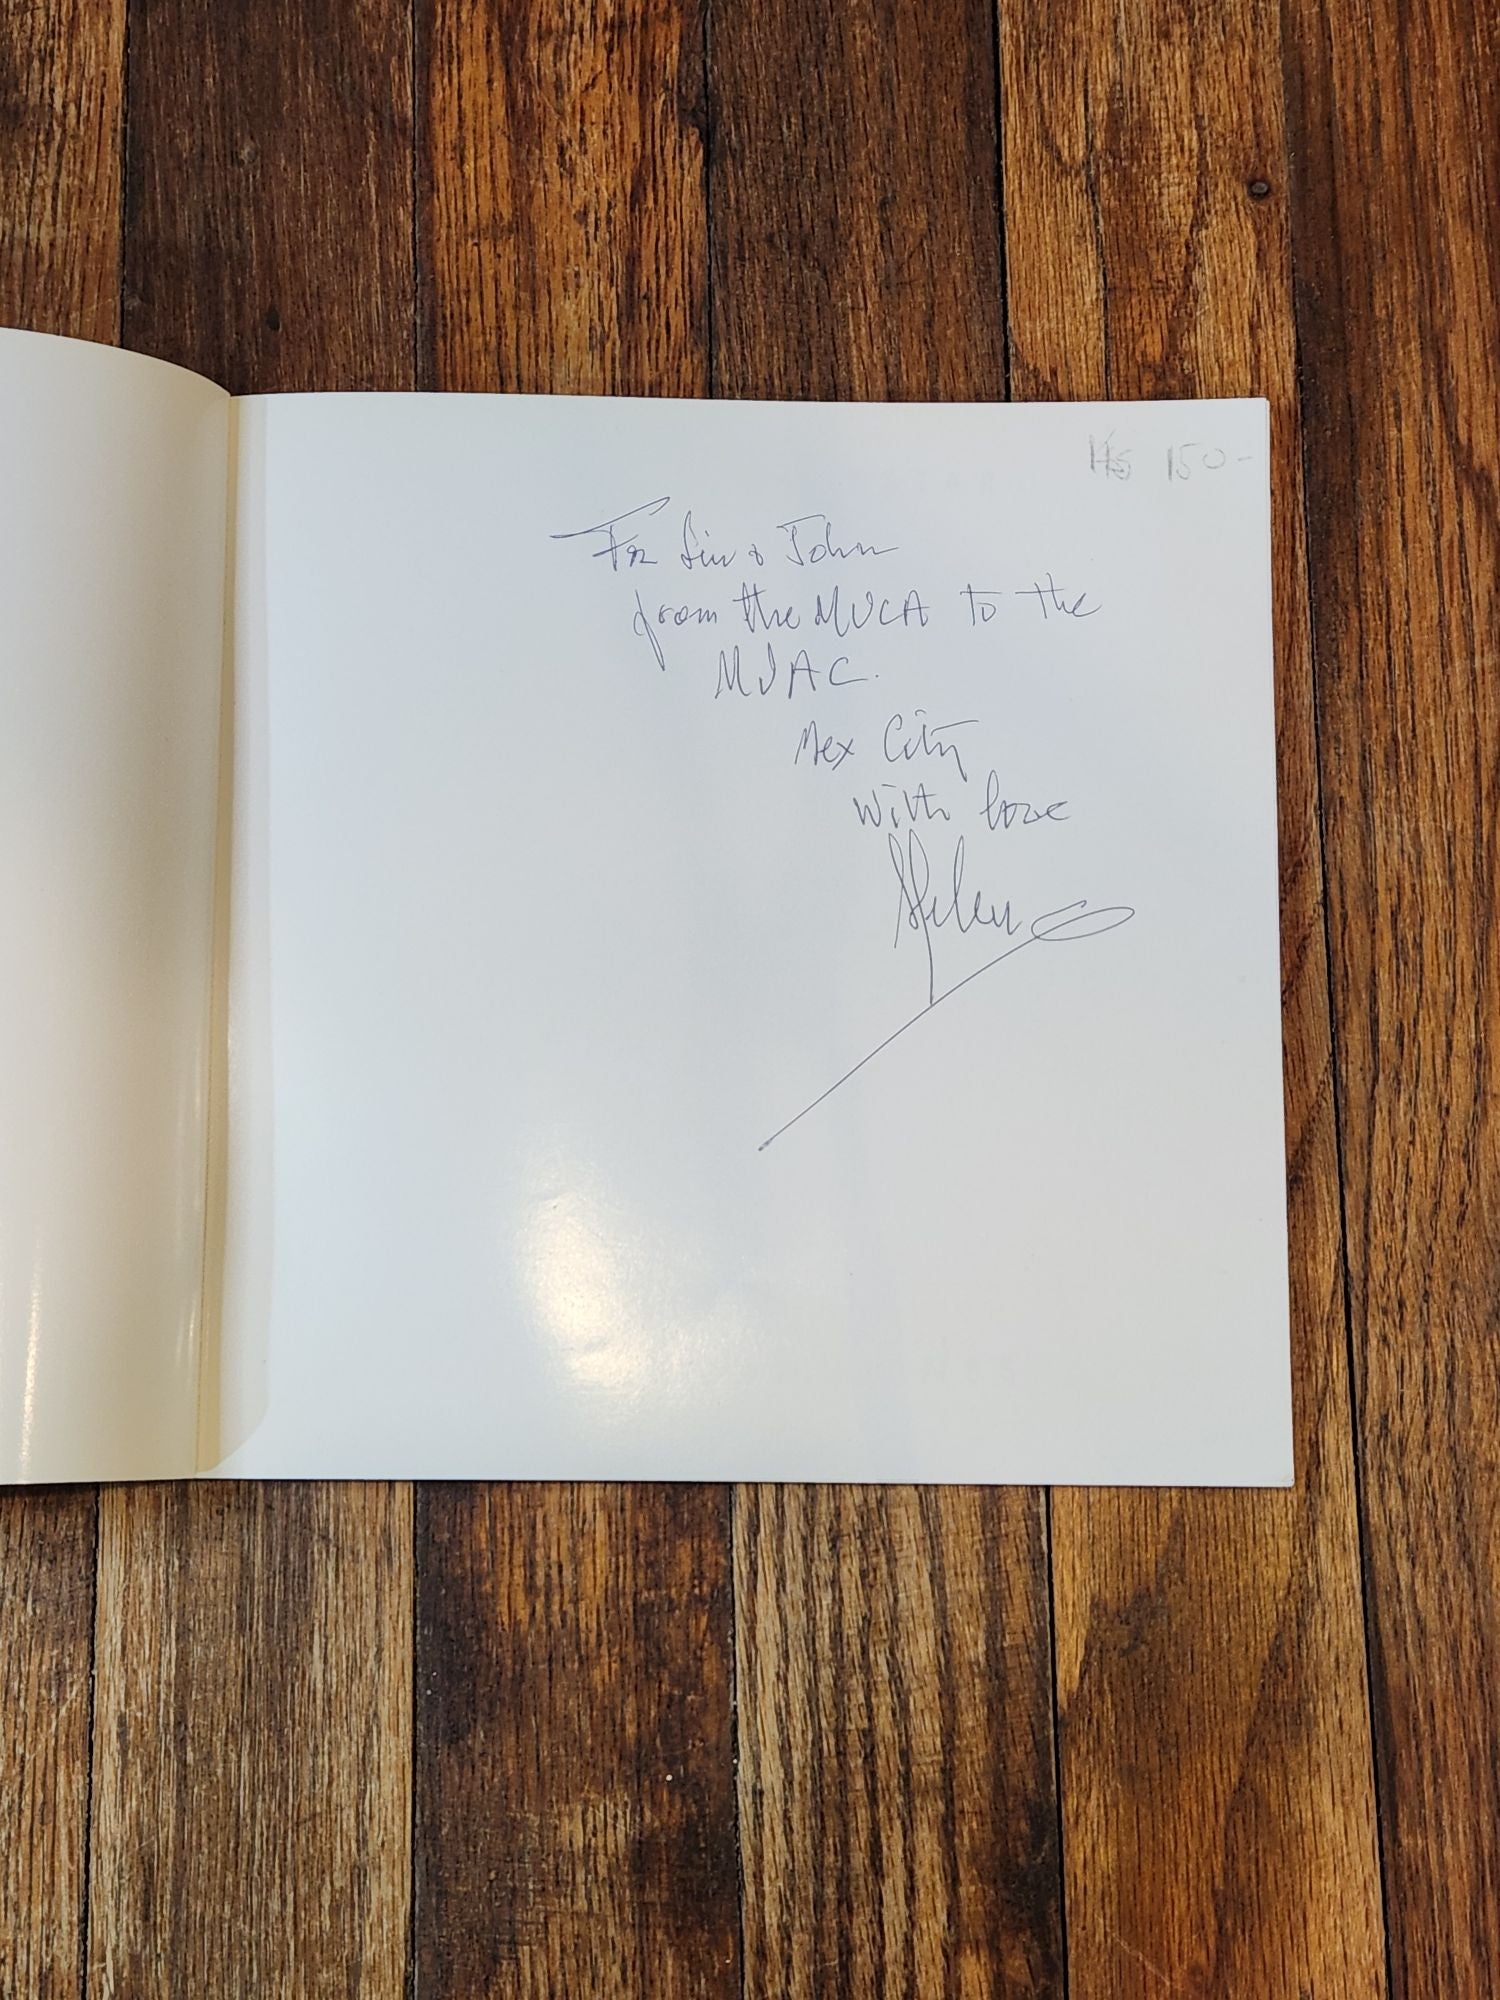 150-
For Liv & John
from the MUCA to the
MUAC.
Mex City
with love
Helen